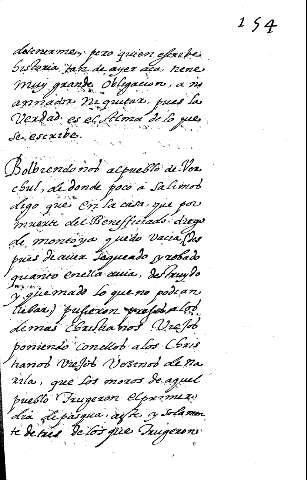 154
detenerme, pero quien escribe
historia tan de ayer aca, tiene
muy grande obligacion, a no
annadir ni quitar, pues la
Verdad es el Alma de lo que
se escribe.
Bolbiendo nos al pueblo de
chul, de donde poco a salimos
digo que en la casa, que por
muerte del Benefficiado diego
de montoya quedo vacia (des
pues de auer saqueado, y robado
quanto en ella auia, destruydo
y quemado lo que no podian
llebar) pusieron presos a los
demas christianos Viejos
poniendo con ellos a los Chris
tianos Viejos Vezinos de na
rila, que los moros de aquel
pueblo Trugeron el primer
dia de pasqua, a este y solamen
te de tres de los que Trugeron